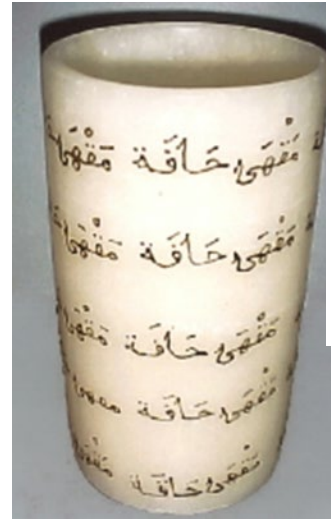 مَقْهَى حَافَة مَقْهَى
مَقْهَى حَافَة مَقْهَى
مَقْهَى حَافَة مَقْهَى
مَقْهَى حَافَة مَقْهَى
مَقْهَى حَافَة مَقْهَى